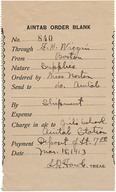 AINTAB ORDER BLANK
No. 840
Through F. H. Wiggin
From Boston
Nature Supplies
Ordered by Miss Norton
Send to do. Aintab
By Shipment
Expense
Charge in a/c to
Aintab Station
Payment Deposit of
Date Mar. 18, 1913
TREAS.